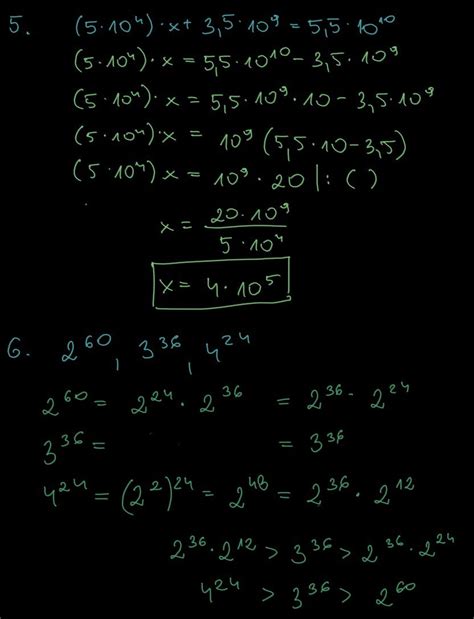 5. (5·10⁴)·x + 3,5·10⁹ = 5,5·10¹⁰
(5·10⁴)·x = 5,5·10¹⁰ - 3,5·10⁹
(5·10⁴)·x = 5,5·10⁹·10 - 3,5·10⁹
(5·10⁴)·x = 10⁹ (5,5·10 - 3,5)
(5·10⁴) x = 10⁹·20 |: ( )
x = 20·10⁹ / 5·10⁴
x = 4·10⁵
6. 2⁶⁰, 3³⁶, 4²⁴
2⁶⁰ = 2²⁴·2³⁶ = 2³⁶·2²⁴
3³⁶ = = 3³⁶
4²⁴ = (2²)²⁴ = 2⁴⁸ = 2³⁶·2¹²
2³⁶·2¹² > 3³⁶ > 2³⁶·2²⁴
4²⁴ > 3³⁶ > 2⁶⁰